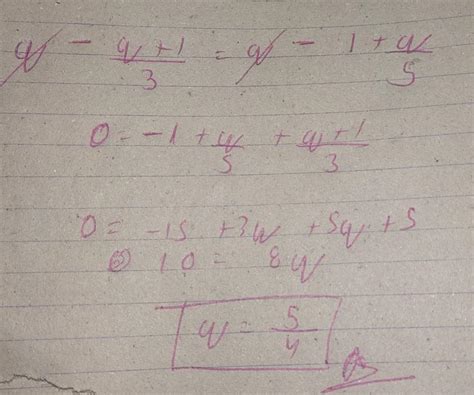 q - (q+1)/3 = q - 1 + q/5
0 = -1 + q/5 + (q+1)/3
0 = -15 + 3q + 5q + 5
10 = 8q
q = 5/4